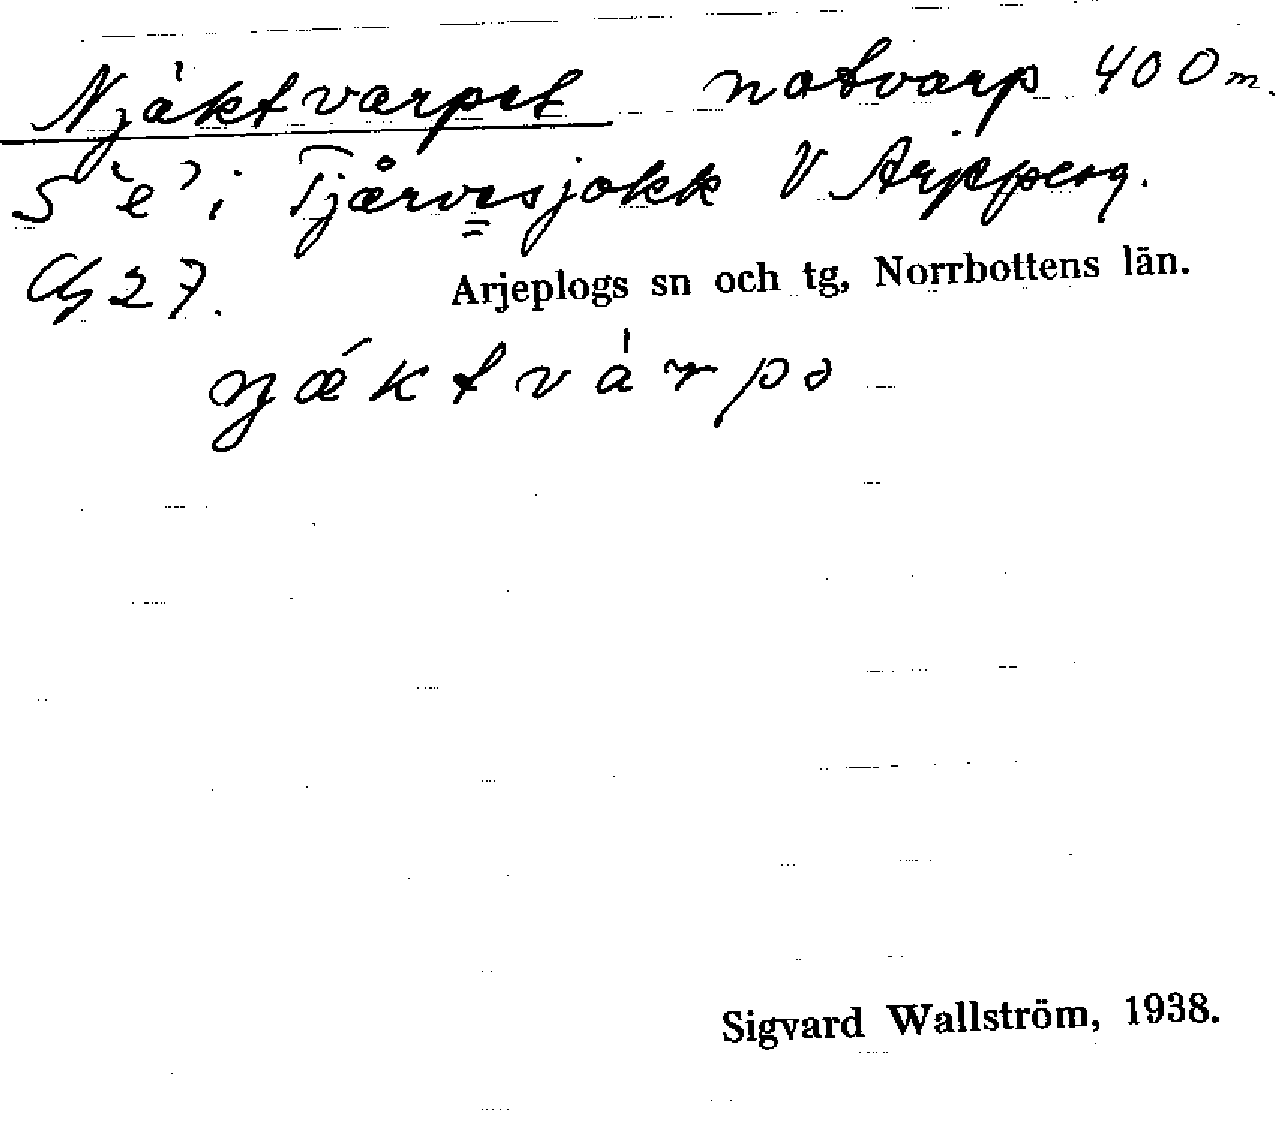 Njáktvarpet notvarp 400 m.
S 'e' i Tjårvesjokk V Arjpperg.
27.
Arjeplogs sn och tg, Norrbottens län.
njǽktvárpə
Sigvard Wallström, 1938.